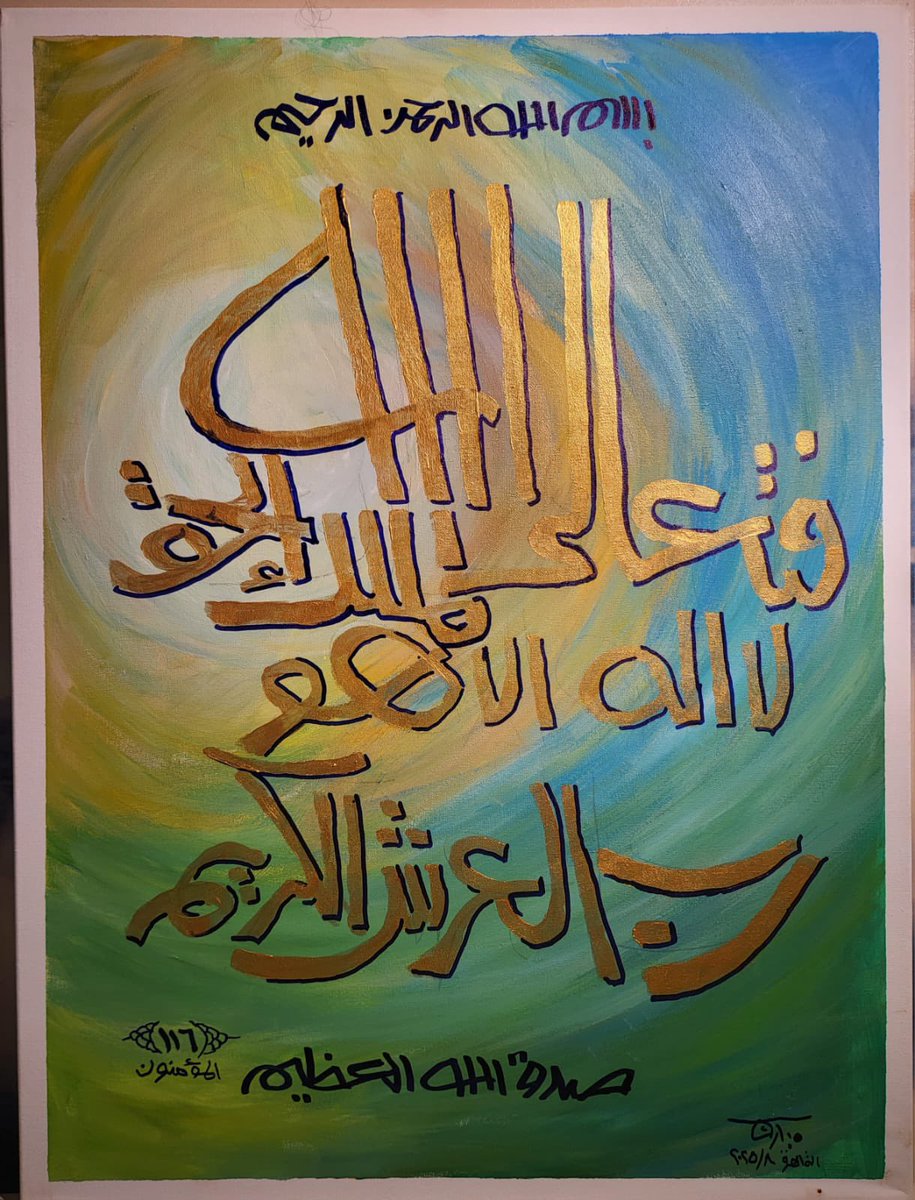 بسم الله الرحمن الرحيم
فتعالى الله الملك الحق
لا اله الا هو
رب العرش الكريم
﴿١١٦﴾
المؤمنون
صدق الله العظيم
القاهرة ٢٠٢٥/٨